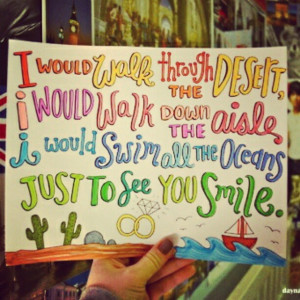 I WOULD Walk through THE DESERT,
i WOULD Walk DOWN THE aisle
i would Swim all THE Oceans
JUST To See YOU Smile.
dayna